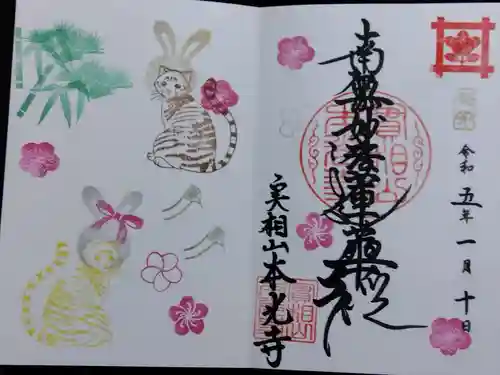 令和五年一月十日
南無妙法蓮華経
実相山本光寺